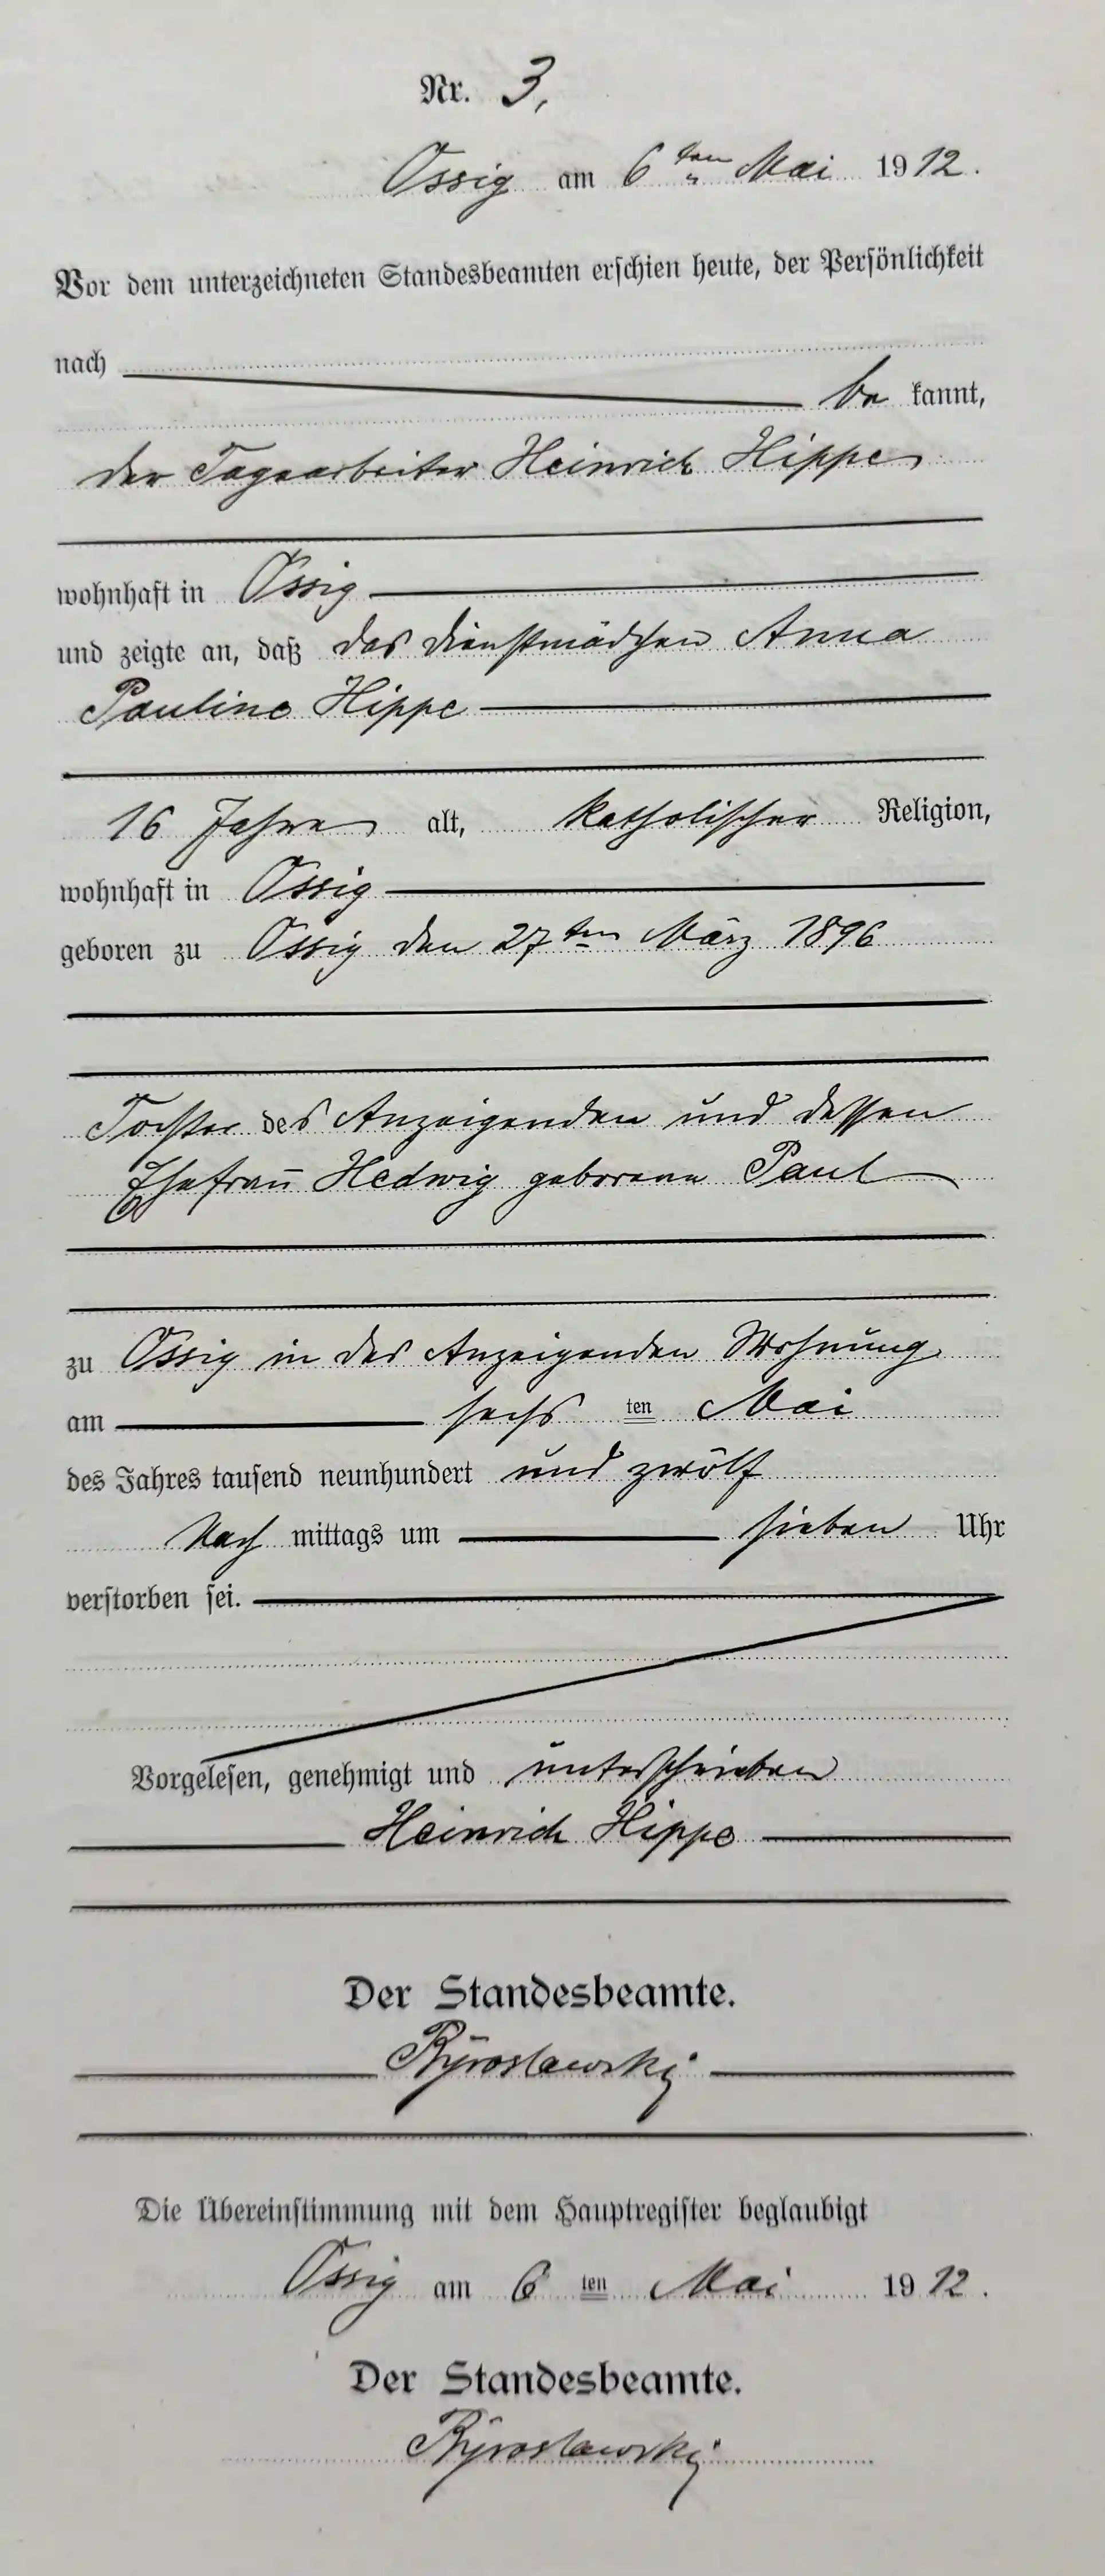 Nr. 3,
Ossig am 6ten Mai 1912.
Vor dem unterzeichneten Standesbeamten erschien heute, der Persönlichkeit
nach
be kannt,
der Tagearbeiter Heinrich Hippe
wohnhaft in Ossig
und zeigte an, daß das Dienstmädchen Anna
Pauline Hippe
16 Jahre alt, katholischer Religion,
wohnhaft in Ossig
geboren zu Ossig den 27ten März 1896
Tochter des Anzeigenden und dessen
Ehefrau Hedwig geborene Paul
zu Ossig in des Anzeigenden Wohnung
am sechs ten Mai
des Jahres tausend neunhundert und zwölf
Nach mittags um sieben Uhr
verstorben sei.
Vorgelesen, genehmigt und unterschrieben
Heinrich Hippe
Der Standesbeamte.
Die Übereinstimmung mit dem Hauptregister beglaubigt
Ossig am 6 ten Mai 1912.
Der Standesbeamte.